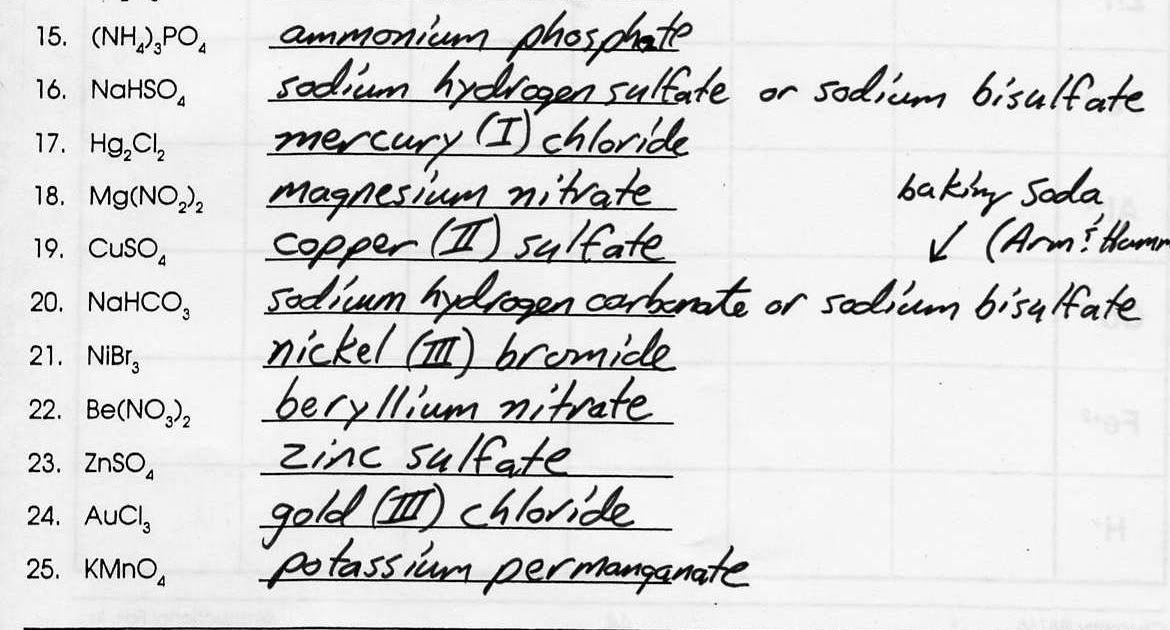 15. (NH₄)₃PO₄ ammonium phosphate
16. NaHSO₄ sodium hydrogen sulfate or sodium bisulfate
17. Hg₂Cl₂ mercury (I) chloride
18. Mg(NO₂)₂ magnesium nitrate baking soda
19. CuSO₄ copper (II) sulfate ↙ (Arm & Hamm
20. NaHCO₃ sodium hydrogen carbonate or sodium bisulfate
21. NiBr₃ nickel (III) bromide
22. Be(NO₃)₂ beryllium nitrate
23. ZnSO₄ zinc sulfate
24. AuCl₃ gold (III) chloride
25. KMnO₄ potassium permanganate